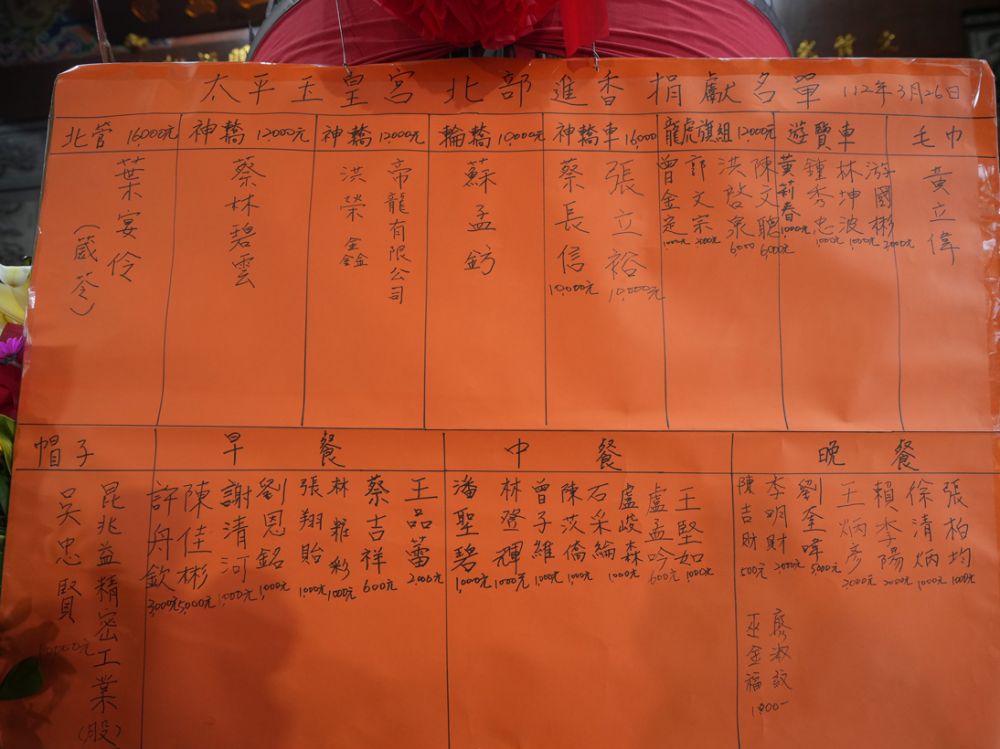 太平玉皇宮北部進香捐獻名單 112年3月26日
北管 16000元
葉安伶
(葳苓)
神轎 12000元
蔡林碧雲
神轎 12000元
帝龍有限公司
洪榮鑫
輪轎 10,000元
蘇孟鈣
神轎車 16,000
張立裕 10,000元
蔡長信 10,000元
龍虎旗組 12,000元
陳文聰 6,000元
洪啓泉 6,000
許文宗 2000元
曾金定 1000元
遊覽車
游國彬 2000元
林坤波 1,000元
鍾秀忠 1000元
黃莉春 1000元
毛巾
黃立偉
帽子
昆兆益精密工業(股)
吳忠賢
早餐
王品蕾 2,000元
蔡吉祥 600元
林雅彩 1000元
張翔貽 1,000元
劉恩銘 1,000元
謝清河 1,000元
陳佳彬 5,000元
許舟欽 3,000元
中餐
王堅如 1,000元
盧孟吟 600元
盧峻森 1000元
石采綸
陳茨僑 1000元
曾子維 1000元
林登輝 1000元
潘聖碧 1,000元
晚餐
張柏均 1000元
徐清炳 1000元
賴李陽 2000元
王炳彥 2,000元
劉奎暐 5,000元
李明財 2,000元
陳吉財 500元
廖淑
巫金福 1,000-